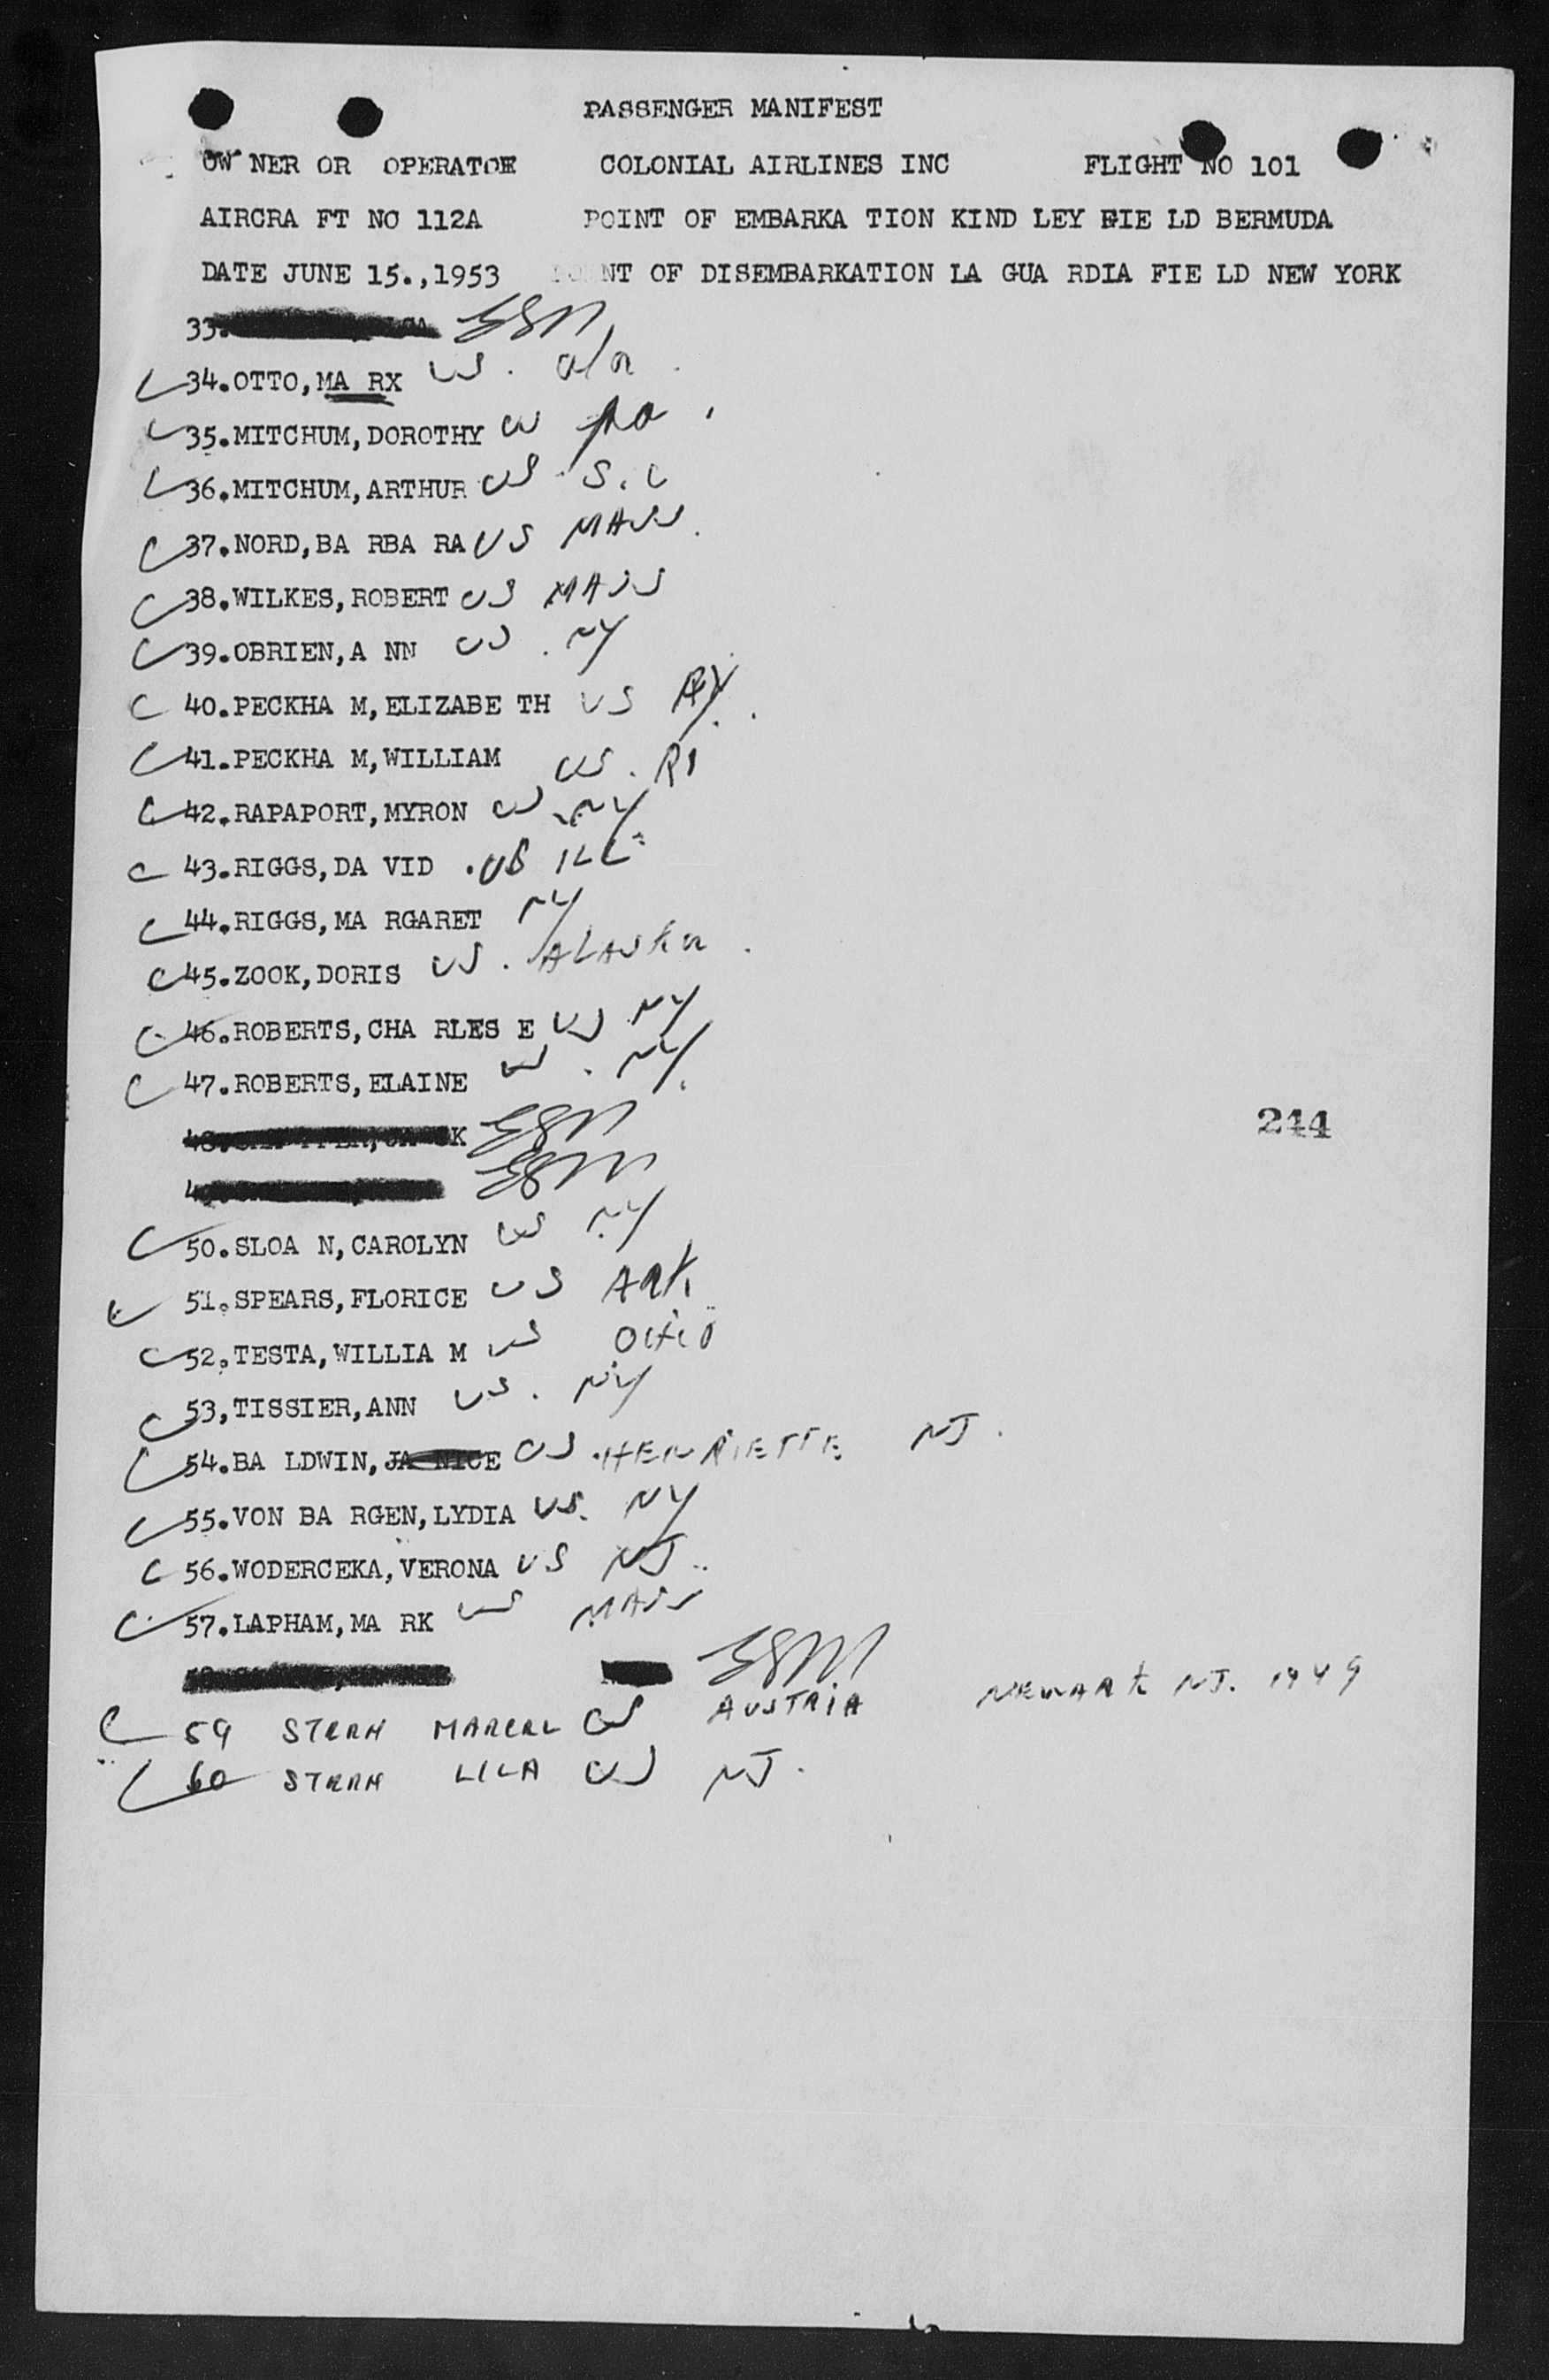 PASSENGER MANIFEST
OW NER OR OPERATOR COLONIAL AIRLINES INC FLIGHT NO 101
AIRCRA FT NO 112A POINT OF EMBARKA TION KIND LEY FIE LD BERMUDA
DATE JUNE 15.,1953 NT OF DISEMBARKATION LA GUA RDIA FIE LD NEW YORK
33.
34.OTTO,MA RX US. ala
35.MITCHUM,DOROTHY US Pa.
36.MITCHUM,ARTHUR US S.C
37.NORD,BA RBA RA US MASS.
38.WILKES,ROBERT US MASS
39.OBRIEN,A NN US. NY
40.PECKHA M,ELIZABE TH US
41.PECKHA M,WILLIAM US. RI
42.RAPAPORT,MYRON US. NY
43.RIGGS,DA VID .US ILL
44.RIGGS,MA RGARET NY
45.ZOOK,DORIS US. ALASKA.
46.ROBERTS,CHA RLES E US NY
47.ROBERTS,ELAINE US. NY.
244
50.SLOA N,CAROLYN US NY
51.SPEARS,FLORICE US ARK
52.TESTA,WILLIA M US OHIO
53,TISSIER,ANN US. NY
54.BA LDWIN,JA NICE US. HENRIETTE NJ.
55.VON BA RGEN,LYDIA US. NY
56.WODERCEKA,VERONA US NJ.
57.LAPHAM,MA RK US MASS
59 STERN MARCEL US AUSTRIA NEWARK NJ. 1949
60 STERN LILA US NJ.